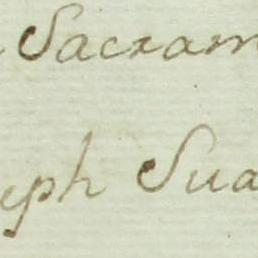 Sacram
eph Sua